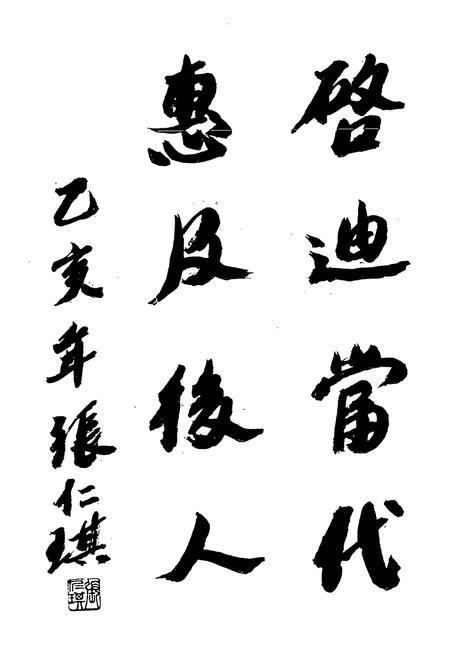 啓迪當代
惠及後人
乙亥年張仁琪
張仁琪